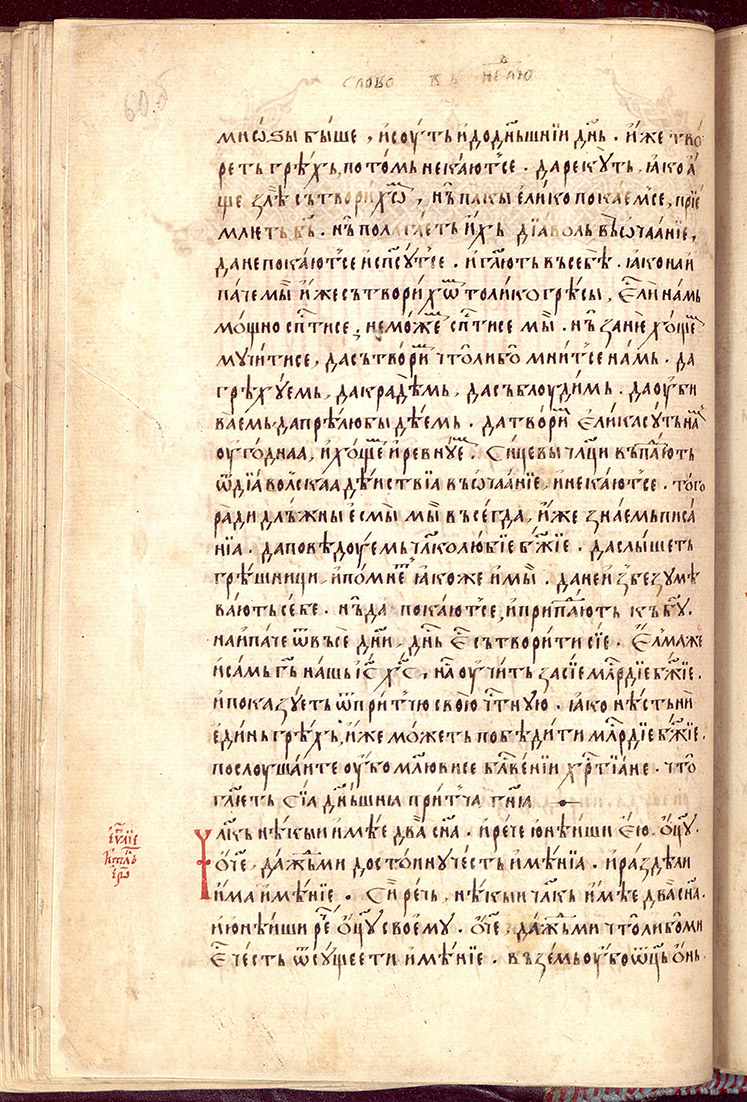 слово в҃ в нелю
60.б
мнѡѕы быше , и соуть и до дн҃ьшнїи дн҃ь . иже тво
реть грѣхь, потомь не кают̾се . да рекꙋть, ꙗко а
ще злѣ сътворихѡⷨ , нь҆ пакы елико покаем̾се , прїе
млѥть бь҃ . нь҆ полагаеть ихь дїаволь въ ѡчаанїе ,
да не покают̾се и сп҃сꙋт̾се . и гл҃ють въ себѣ . ꙗко наи
паче мы иже сътворихѡⷨ толико грѣсы , ѥгⷣа ли намь
мощно сп҃тисе ; неможеⷨ сп҃тисе мы . нь҆ зание хощеⷨ
мучитисе , да сътвориⷨ что либо мнит̾се намь . да
грѣхꙋемь , да крадѣмь , да съблоудимь . да оуби
ваемь . да прѣлюбы дѣемь . да твориⷨ елика сꙋть наⷨ
оугоднаа , и хощеⷨ и ревнꙋеⷨ . Сицевы чл҃ци въпаⷣють
ѿ дїаволскаа дѣиствїа въ ѡчаанїе , и не кают̾се . того
ради длъжны есмы мы въсегда , иже знаемь писа
нїа . да повѣдоуемь чл҃колюбїе бж҃їе . да слышеть
грѣшници , и помнеⷮ ꙗкоже и мы . да не изⸯбезꙋмѣ
вають себе . нь да покают̾се , и припаⷣають къ бг҃ꙋ .
наипаче ѿ въсе дн҃и , дн҃ь ѥⷭ сътворити сїе . Елмаже
и самь гь҃ нашь іс҃ хс҃ , на оучить за сїе млрⷭдїе бж҃їе .
и показꙋеть ѿ притчю свою чⷭтнꙋю . ꙗко нѣсть ни
единь грѣхь , иже можеть побѣдити млрⷭдїе бж҃їе .
послоушаите оубо мл҃ю ви се бл҃вении хрⷭтїане . что
гл҃ѥть сїа дн҃ьшнꙗ притча гн҃ꙗ
Чл҃кь нѣкыи имѣе два сн҃а . и рече юнѣиши ею . ѻц҃ꙋ .
ѻч҃е , даждь ми достоинꙋ честь имѣнїа . и раздѣли
има имѣнїе . Си рѣчь , нѣкыи чл҃кь имѣе два сн҃а .
и юнѣиши реⷱ ѻц҃ꙋ своемꙋ . ѻч҃е , даждь ми что либо ми
ѥⷭ честь ѿ сꙋщее ти имѣнїе . въземь оубо ѿц҃ь ѻнь